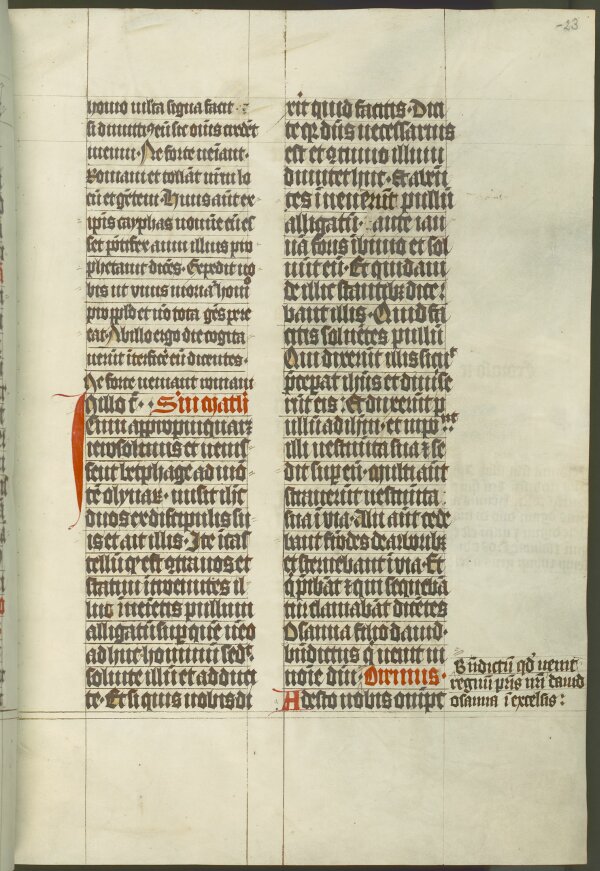 -23
homo multa signa facit ·
si dimittim9 eū sic om̄s credēt
in eum · Ne forte veniant ·
Romani et tollāt nr̄m lo
cū et gētem · Unus aūt ex
ip̄is cayphas nomīe cū es
set pōtifex anni illius pro
phetauit dicēs · Expedit vo
bis ut vnus moriaᷣ homo
pro pplo et nō tota gēs pere
at · Ab illo ergo die cogita
uerūt īterficē eū dicentes ·
Ne forte veniant romani
In illo t̄ · Sm̄ marcū
Cum appropinquaret
ierosolimis et venis
sent bethphage ad mō
tē olyuaꝝ · misit ih̄c
duos ex discipulis su
is et ait illis · Ite ī cas
tellū qd̓ est ꝯtra uos et
statim īuenietis il
luc ītroeūtes pullum
alligatū sup̱ quē nēo
adhuc homīnū sedᷣ ·
soluite illū et adduci
te · Et si quis uobis di
xerit quid facitis · Dici
te qꝛ dn̄s necessarius
est et ꝯtinuo illum
dimittet huc · Et abeū
tes inuenerūt pullū
alligatū · ante ianu
ā foris ī biuio et sol
uūt eū · Et quidam
de illic stantibꝫ dice
bant illis · Quid fa
citis soluētes pullū
Qui dixerūt illis sicut
p̄ceperat ih̄us et dimise
rūt eis · Et duxerūt p
ullū ad ih̄m · et īpo nūt
illi uestimēta sua ⁊ se
dit sup̱ eū · multi aūt
strauerūt uestimēta ·
sua ī via · Alii aūt cede
bant frōdes de arboribꝫ
et sternebant ī via · Et
q̄ p̄ibāt ⁊ qui sequebā
tur clamabāt dicētes
Osanna filio dauid ·
bn̄dictus q̄ uenit in
noīe dn̄i · Oremus ·
Adesto nobis omīpe
Bn̄dictū qd̓ uenit
regnū pr̄is nr̄i dauid
osanna ī excelsis :